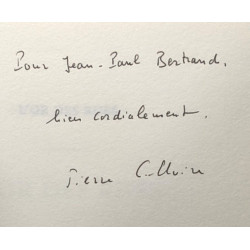 Pour Jean-Paul Bertrand,
bien cordialement.
Pierre